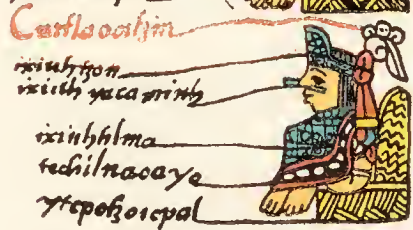 Cuitlaoatzin
ixiuhtzon
ixiuh yaca miuh
ixiuhtilma
techilnaoayo
ytepotzoicpal